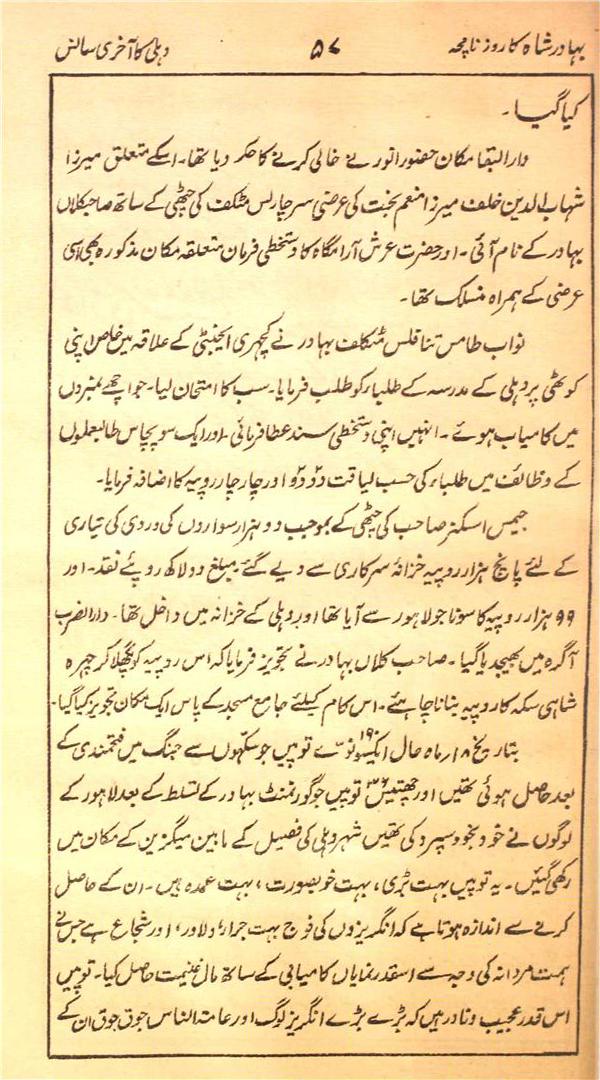 بہادر شاہ کا روزنامچہ ۵۷ دہلی کا آخری سانس
کیا گیا۔
دارالبقا مکان حضور انور نے خالی کرنے کا حکم دیا تھا۔ اسکے متعلق میرزا
شہاب الدین خلف میرزا منعم بخت کی عرضی سرچارلس مٹکف کی چٹھی کے ساتھ صاحبکلاں
بہادر کے نام آئی۔ اور حضرت عرش آرامگاہ کا دستخطی فرمان متعلقہ مکان مذکورہ بھی اسی
عرضی کے ہمراہ منسلک تھا۔
نواب طامس تنافلس مٹکلف بہادر نے کچہری ایجنٹی کے علاقہ میں خاص اپنی
کوٹھی پر دہلی کے مدرسہ کے طلباء کو طلب فرمایا۔ سب کا امتحان لیا۔ جو اچھے نمبروں
میں کامیاب ہوئے۔ انہیں اپنی دستخطی سند عطا فرمائی۔ اور ایک سو پچاس طالبعلموں
کے وظائف میں طلباء کی حسب لیاقت دو دو اور چار چار روپیہ کا اضافہ فرمایا۔
جیمس اسکنر صاحب کی چٹھی کے بموجب دو ہزار سواروں کی وردی کی تیاری
کے لئے پانچ ہزار روپیہ خزانۂ سرکاری سے دیے گئے۔ مبلغ دو لاکھ روپئے نقد۔ اور
۹۹ ہزار روپیہ کا سونا جو لاہور سے آیا تھا اور دہلی کے خزانہ میں داخل تھا۔ دارالضرب
آگرہ میں بھیجد یا گیا۔ صاحب کلاں بہادر نے تجویز فرمایا کہ اس روپیہ کو پگھلا کر چہرہ
شاہی سکہ کا روپیہ بنانا چاہئے۔ اس کام کیلئے جامع مسجد کے پاس ایک مکان تجویز کیا گیا۔
بتاریخ ۱۸؍ماہ حال ایکسو نوے ۱۹۰ توپیں جو سکہوں سے جنگ میں فتحمندی کے
بعد حاصل ہوئی تھیں اور چھتیس ۳۶ توپیں جو گورنمنٹ بہادر کے تسلط کے بعد لاہور کے
لوگوں نے خود بخود سپرد کی تھیں شہر دہلی کی فصیل کے مابین میگزین کے مکان میں
رکھی گئیں۔ یہ توپیں بہت بڑی، بہت خوبصورت، بہت عمدہ ہیں۔ ان کے حاصل
کرنے سے اندازہ ہوتا ہے کہ انگریزوں کی فوج بہت جرار، دلاور، اور شجاع ہے جس نے
ہمت مردانہ کی وجہ سے اسقدر نمایاں کامیابی کے ساتھ مال غنیمت حاصل کیا۔ توپیں
اس قدر عجیب و نادر ہیں کہ بڑے بڑے انگریز لوگ اور عامتہ الناس جوق جوق ان کے